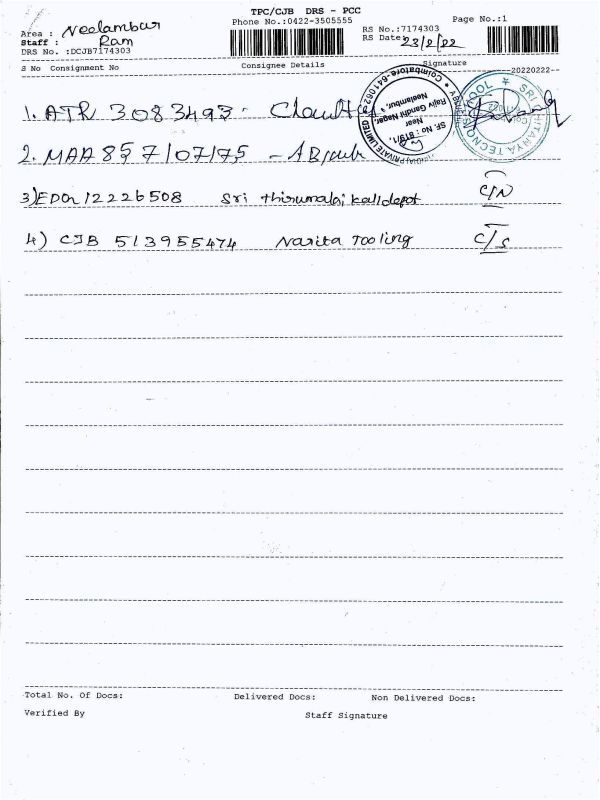 TPC/CJB DRS - PCC
Phone No.:0422-3505555
Page No.:1
Area : Neelambur
Staff : Ram
DRS No. :DCJB7174303
RS No.:7174303
RS Date: 23/2/22
S No Consignment No Consignee Details Signature
20220222--
1. ATR 3083493 -
2. MAA 857107175 -
3) EDR 12226508 Sri Thirumalai Kall depot C/N
4) CJB 513955474 Narita Tooling C/S
Coimbatore-641062
SF. No : 879/1,
Near
Rajiv Gandhi Nagar,
Neelambur,
PRIVATE LIMITED
SRI CHAITANYA TECHNO SCHOOL
Total No. Of Docs: Delivered Docs: Non Delivered Docs:
Verified By Staff Signature